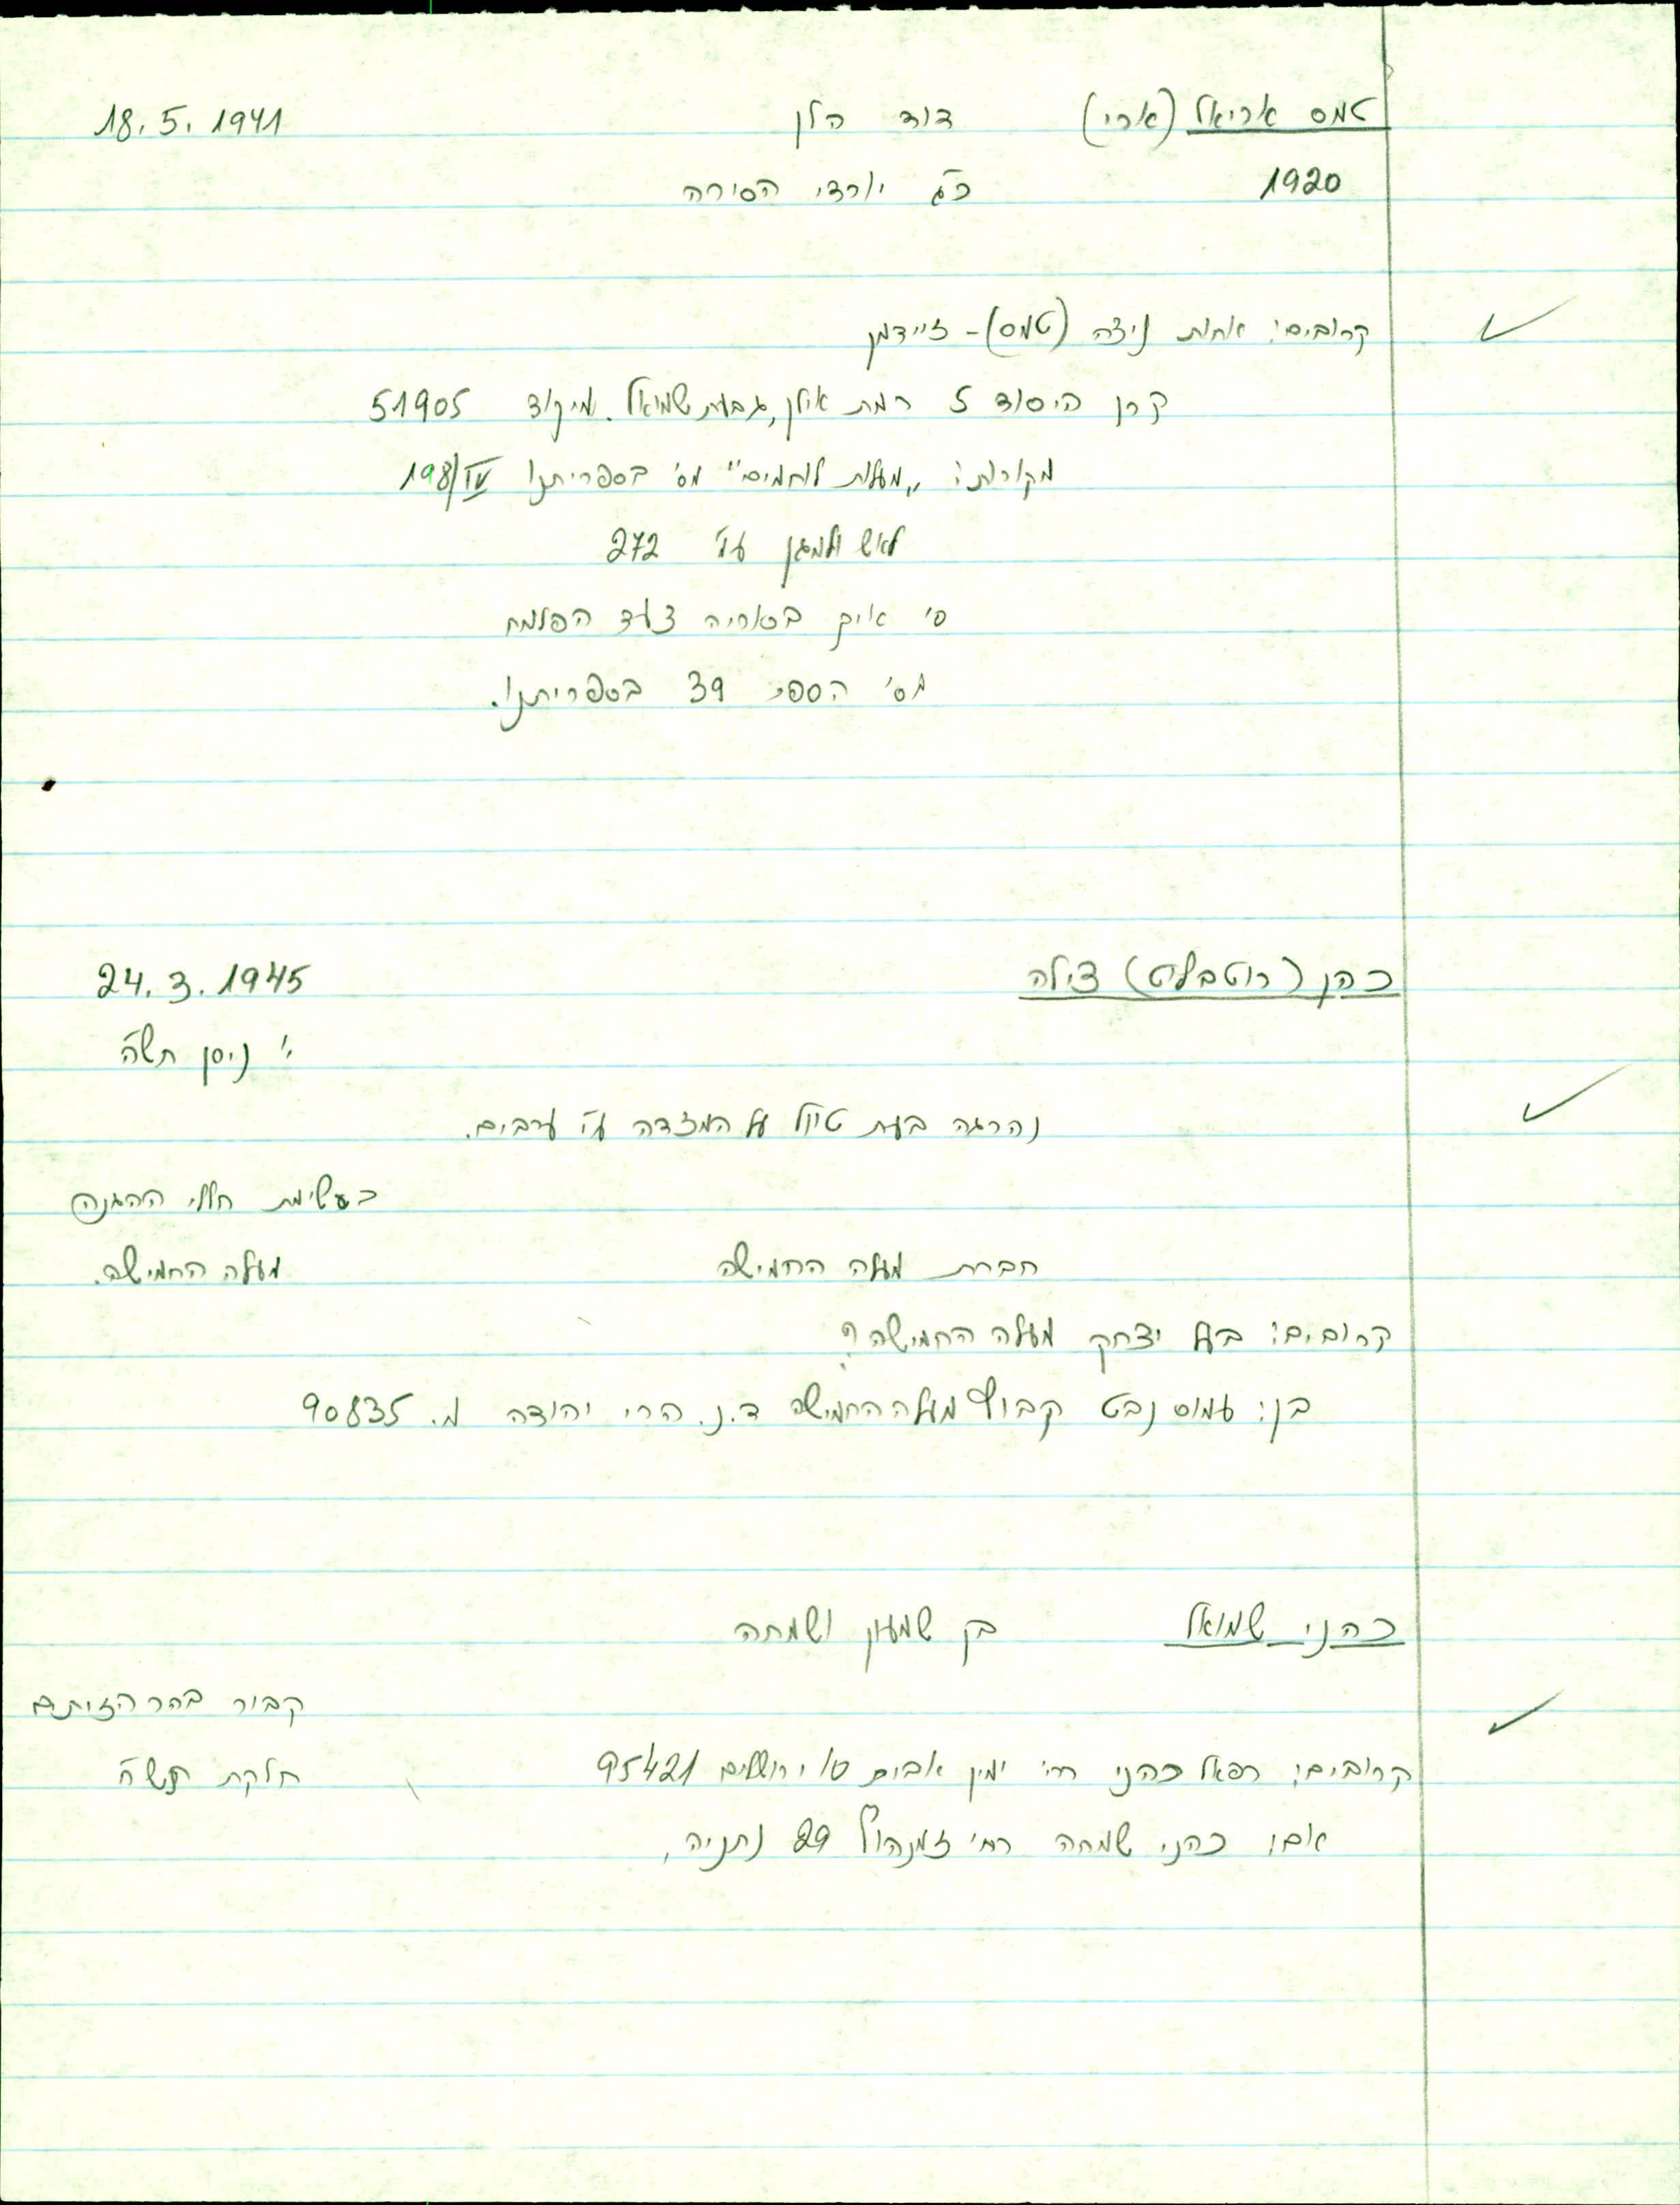 טמס אריאל (ארי) דוד הלן 18.5.1941
1920 כ"ג יורדי הסירה
קרובים: אחות ניצה (טמס) - זיידמן
קרן היסוד 5 רמת אילן, גבעת שמואל. מיקוד 51905
מקורות: "מעלות לוחמים" מס' בספריתנו 198/IV
לאש ולמגן עמ' 272
ס' איך בסוריה צעד הפלמח
מס' הספר 39 בספריתנו.
כהן (רוטבלט) צילה 24.3.1945
י' ניסן תש"ה
נהרגה בעת טיול על המצדה ע"י ערבים.
ברשימת חללי ההגנה
חברת מעלה החמישה מעלה החמישה.
קרובים: בעל יצחק מעלה החמישה?
בן: עמוס נבט קבוץ מעלה החמישה ד.נ. הרי יהודה מ. 90835
כהני שמואל בן שמעון ושמחה
קבור בהר הזיתים
קרובים: רפאל כהני רח' ימין אבות 10 ירושלים 95421 חלקת תש"ח
אם: כהני שמחה רח' זמנהוף 29 נתניה,